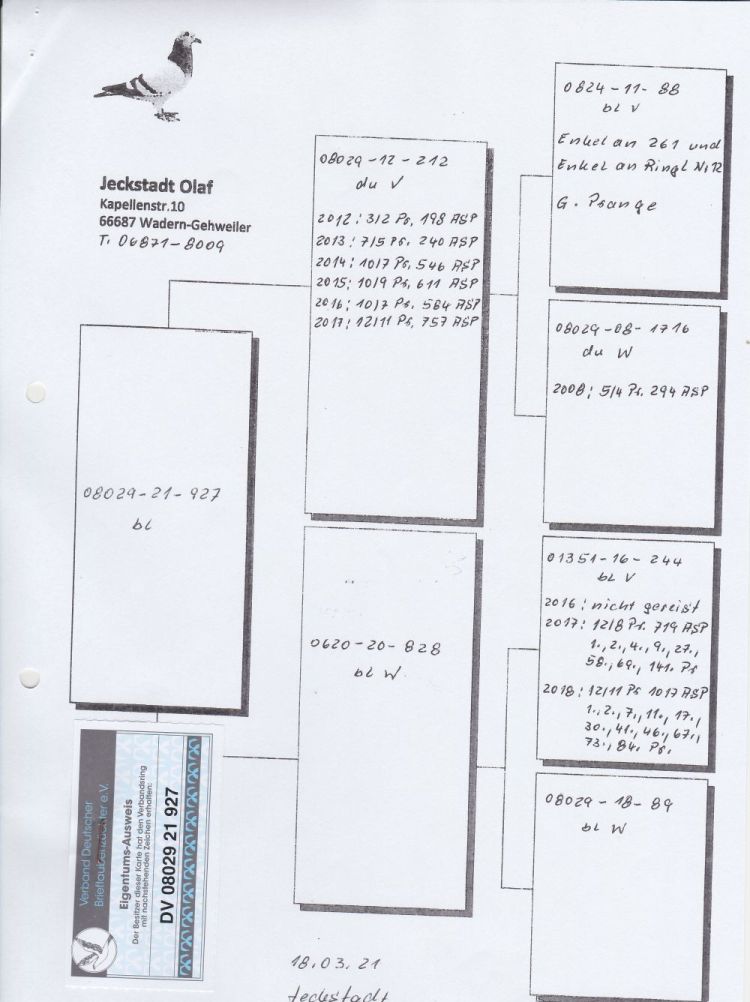 Jeckstadt Olaf
Kapellenstr.10
66687 Wadern-Gehweiler
T. 06871-8009
08029-21-927
bl
08029-12-212
du V
2012: 3/2 Ps, 198 ASP
2013: 7/5 Ps. 240 ASP
2014: 10/7 Ps, 546 ASP
2015: 10/9 Ps, 611 ASP
2016: 10/7 Ps. 584 ASP
2017: 12/11 Ps, 757 ASP
0620-20-828
bl W
0824-11-88
bl V
Enkel an 261 und
Enkel an Ringl
G. Prange
08029-08-1716
du W
2008: 5/4 Ps. 294 ASP
01351-16-244
bl V
2016: nicht gereist
2017: 12/8 Ps. 719 ASP
1., 2., 4., 9., 27.,
58., 69., 141. Ps
2018: 12/11 Ps 1017 ASP
1., 2., 7., 11., 17.,
30., 41., 46., 67.,
73., 84. Ps.
08029-18-89
bl W
Verband Deutscher
Brieftaubenzüchter e.V.
Eigentums-Ausweis
Der Besitzer dieser Karte hat den Verbandsring
mit nachstehenden Zeichen erhalten:
DV 08029 21 927
18.03.21
Jeckstadt